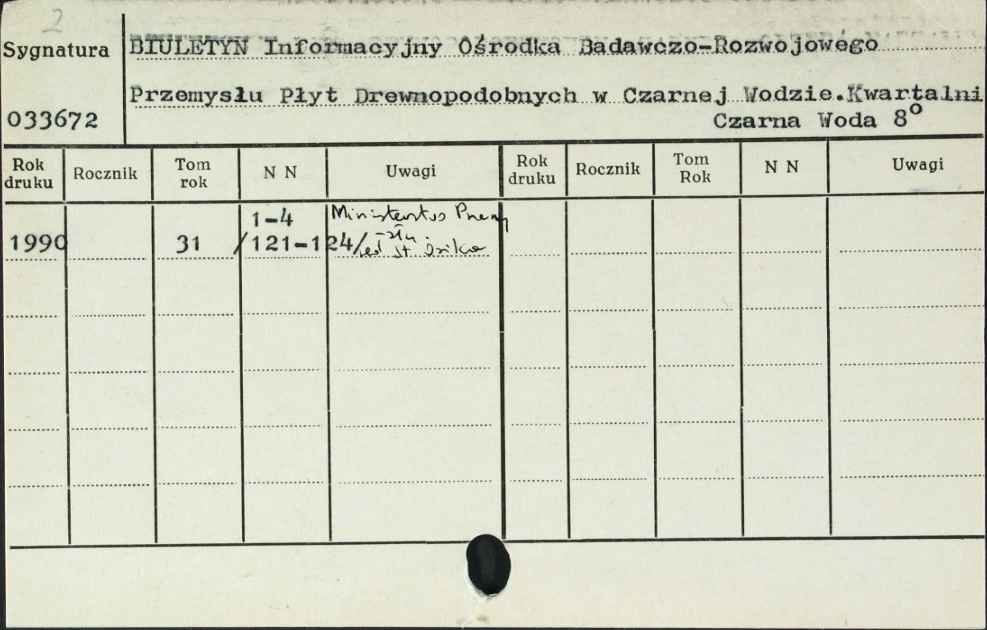 2
Sygnatura
BIULETYN Informacyjny Ośrodka Badawczo-Rozwojowego
Przemysłu Płyt Drewnopodobnych w Czarnej Wodzie.Kwartalni
033672
Czarna Woda 8°
Rok druku Rocznik Tom rok N N Uwagi Rok druku Rocznik Tom Rok N N Uwagi
1-4
1990 31 /121-124/